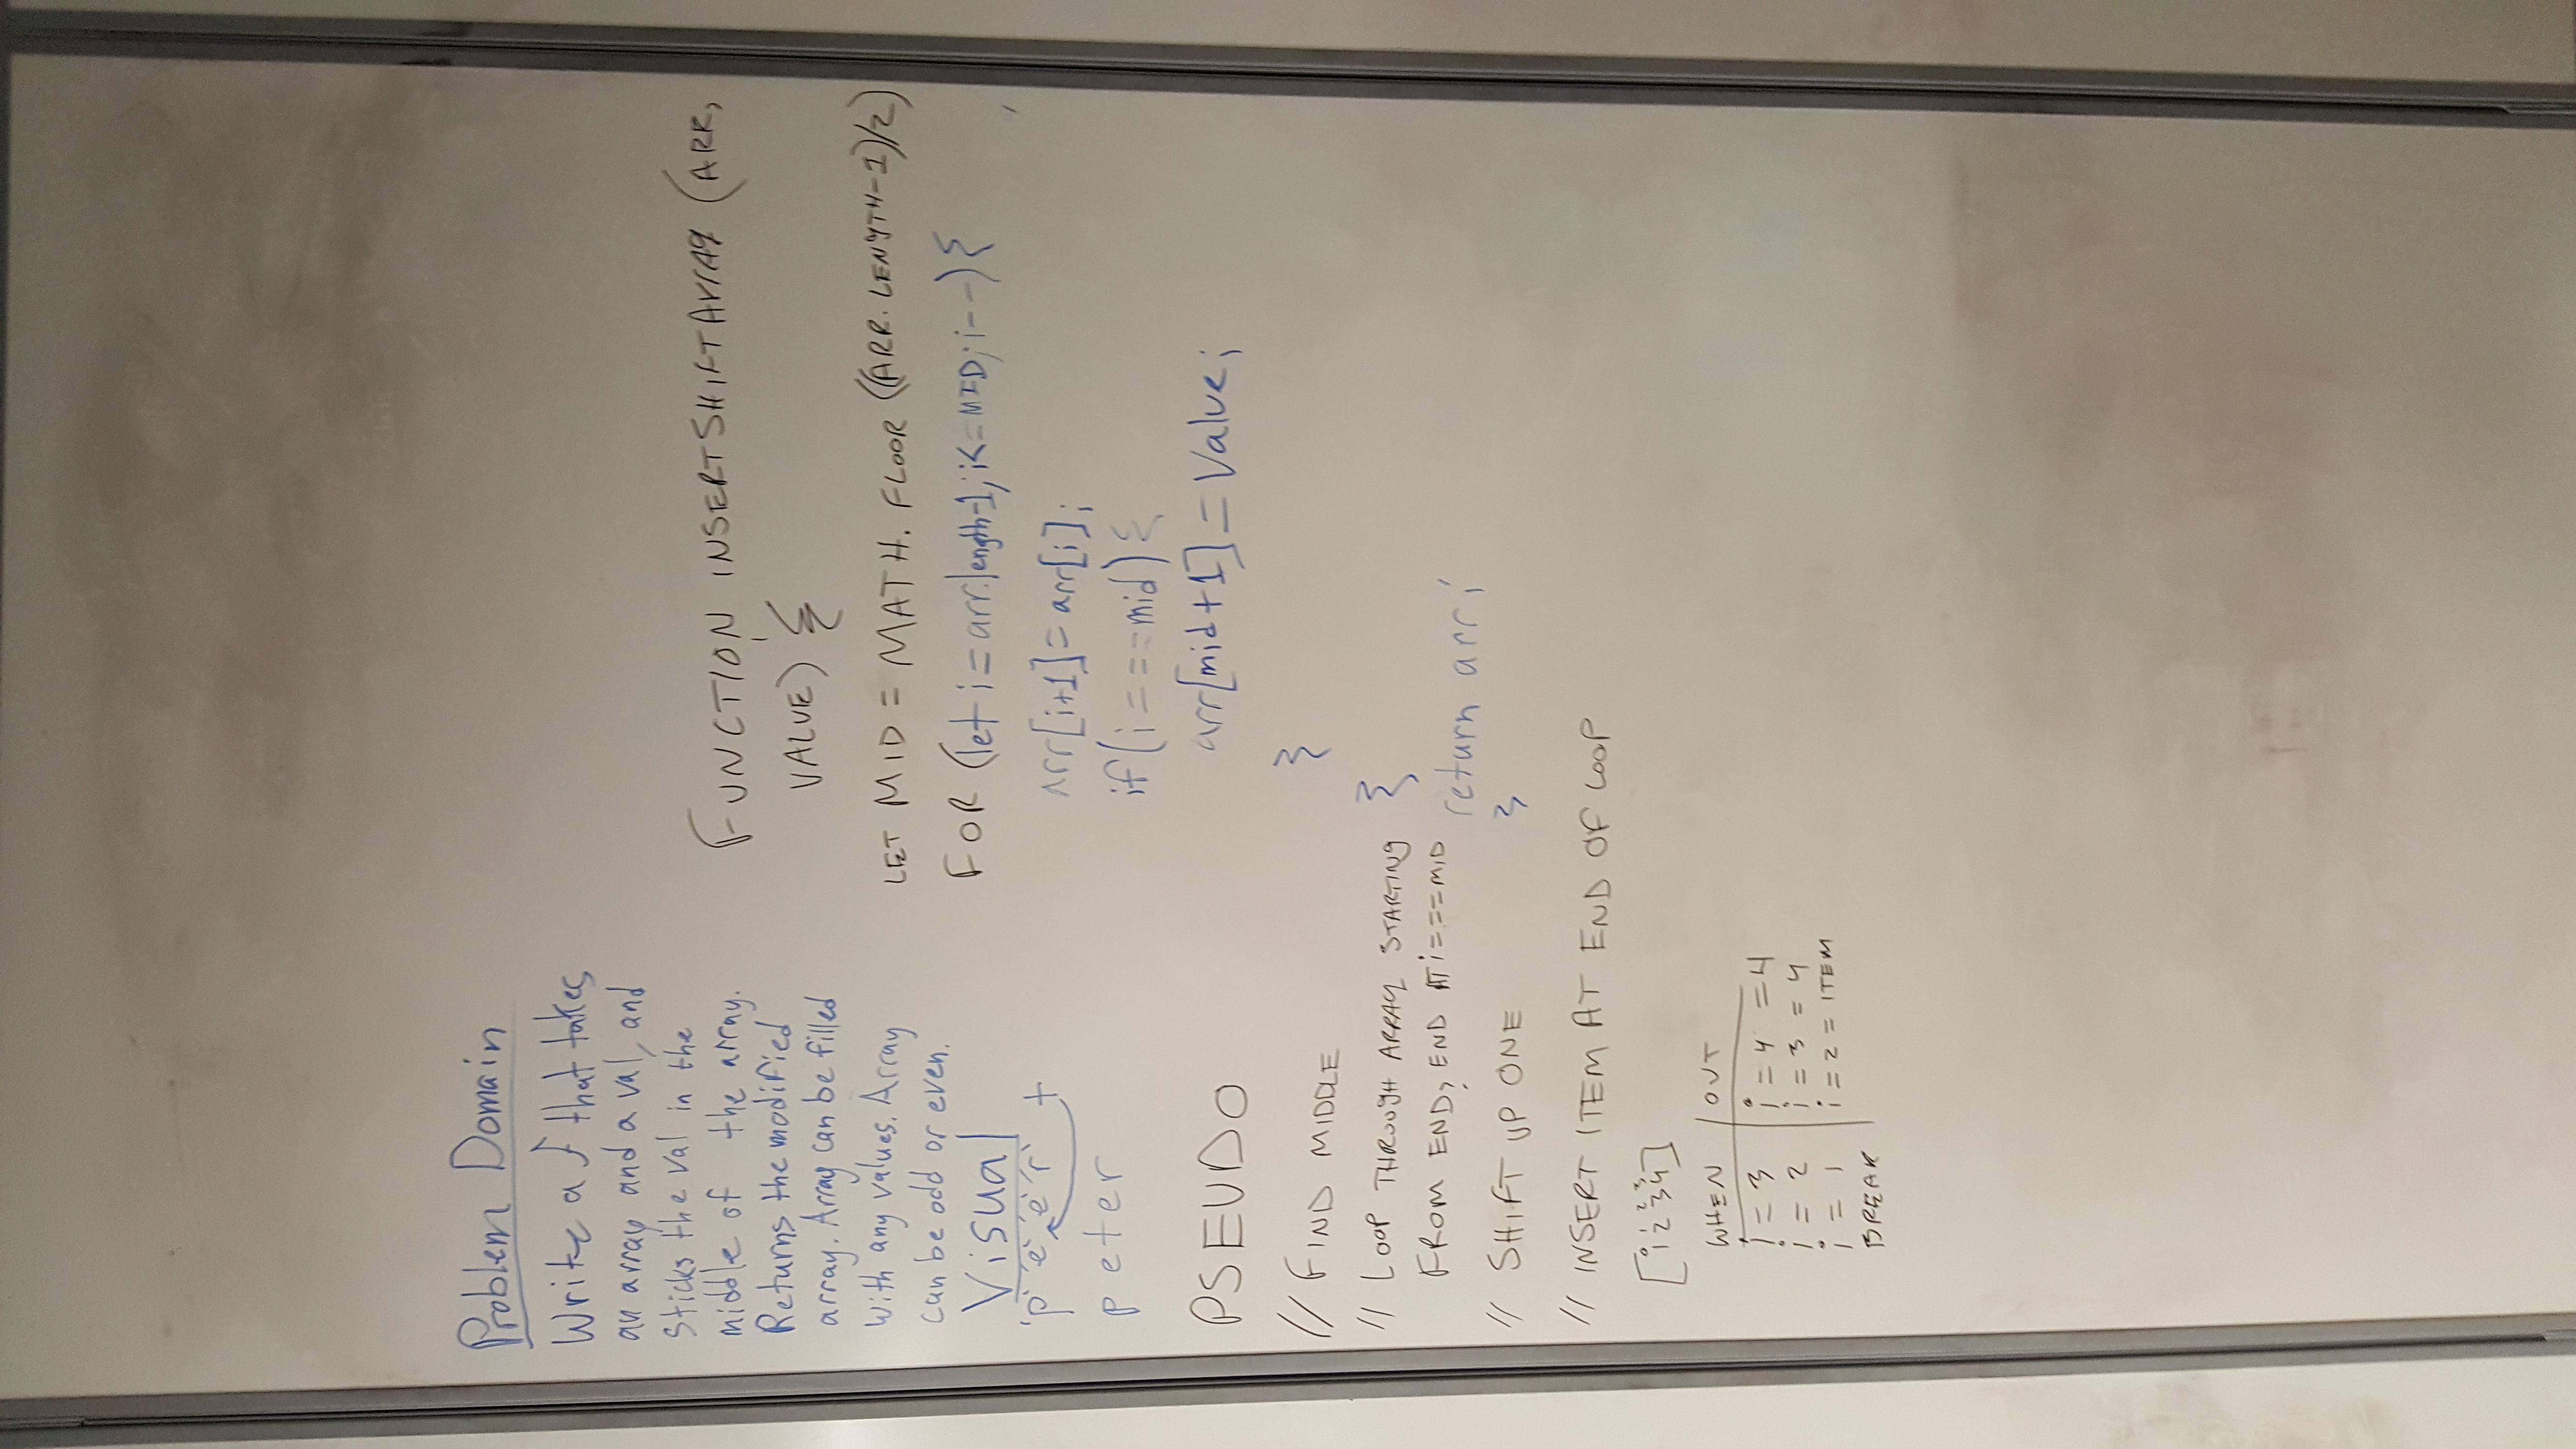 Problem Domain
Write a f that takes
an array and a val, and
Sticks the val in the
middle of the array.
Returns the modified
array. Array can be filled
with any values. Array
can be odd or even.
Visual
'p' 'e' 'e' 'r' t
peter
PSEUDO
// FIND MIDDLE
// LOOP THROUGH ARRAY STARTING
FROM END, END AT i===MID
// SHIFT UP ONE
// INSERT ITEM AT END OF LOOP
0 1 2 3
[1 2 3 4]
WHEN | OUT
i = 3 | i = 4 = 4
i = 2 | i = 3 = 4
i = 1 | i = 2 = ITEM
BREAK
FUNCTION INSERTSHIFTArrAy (ARR,
VALUE) {
LET MID = MATH. FLOOR ((ARR. LENGTH-1)/2)
FOR (let i = arr.length-1; i<=MID; i--){
arr[i+1] = arr[i];
if(i===mid){
arr[mid+1] = Value;
}
}
return arr;
}